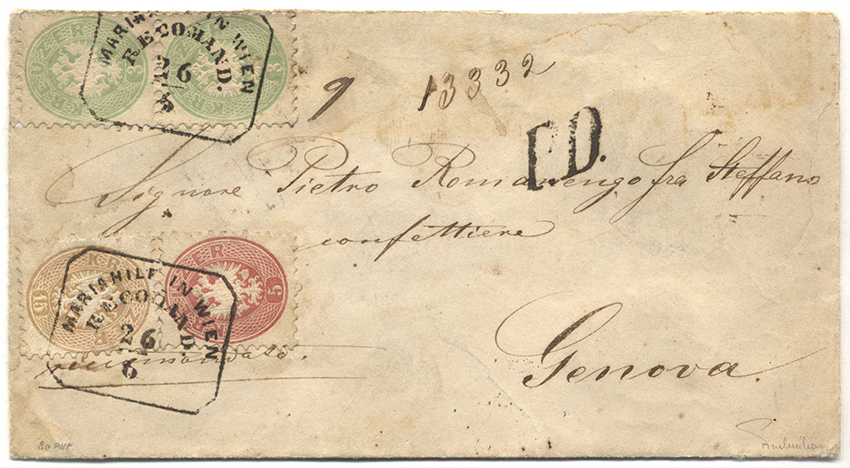 3 KREUZER 3 KREUZER
MARIAHILF IN WIEN
RECOMAND.
26
9 13332
P.D.
Signore Pietro Romanengo fra Steffano
confettiere
15 KREUZER 5
MARIAHILF IN WIEN
RECOMAND.
26
6
Genova.